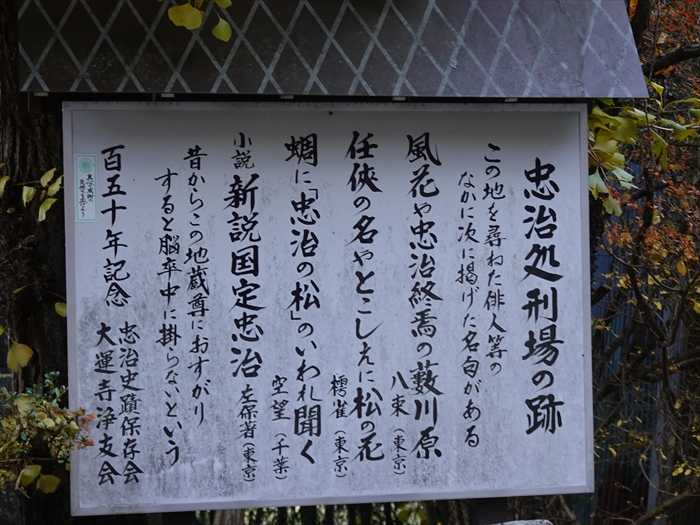 忠治処刑場の跡
この地を尋ねた俳人等の
なかに次に掲げた名句がある
風花や忠治終焉の藪川原
八束(東京)
任侠の名やとこしえに松の花
樗雀(東京)
蜩に「忠治の松」のいわれ聞く
空望(千葉)
小説 新説国定忠治 左保著(東京)
昔からこの地蔵尊におすがり
すると脳卒中に掛らないという
百五十年記念 忠治史蹟保存会
大運寺浄友会